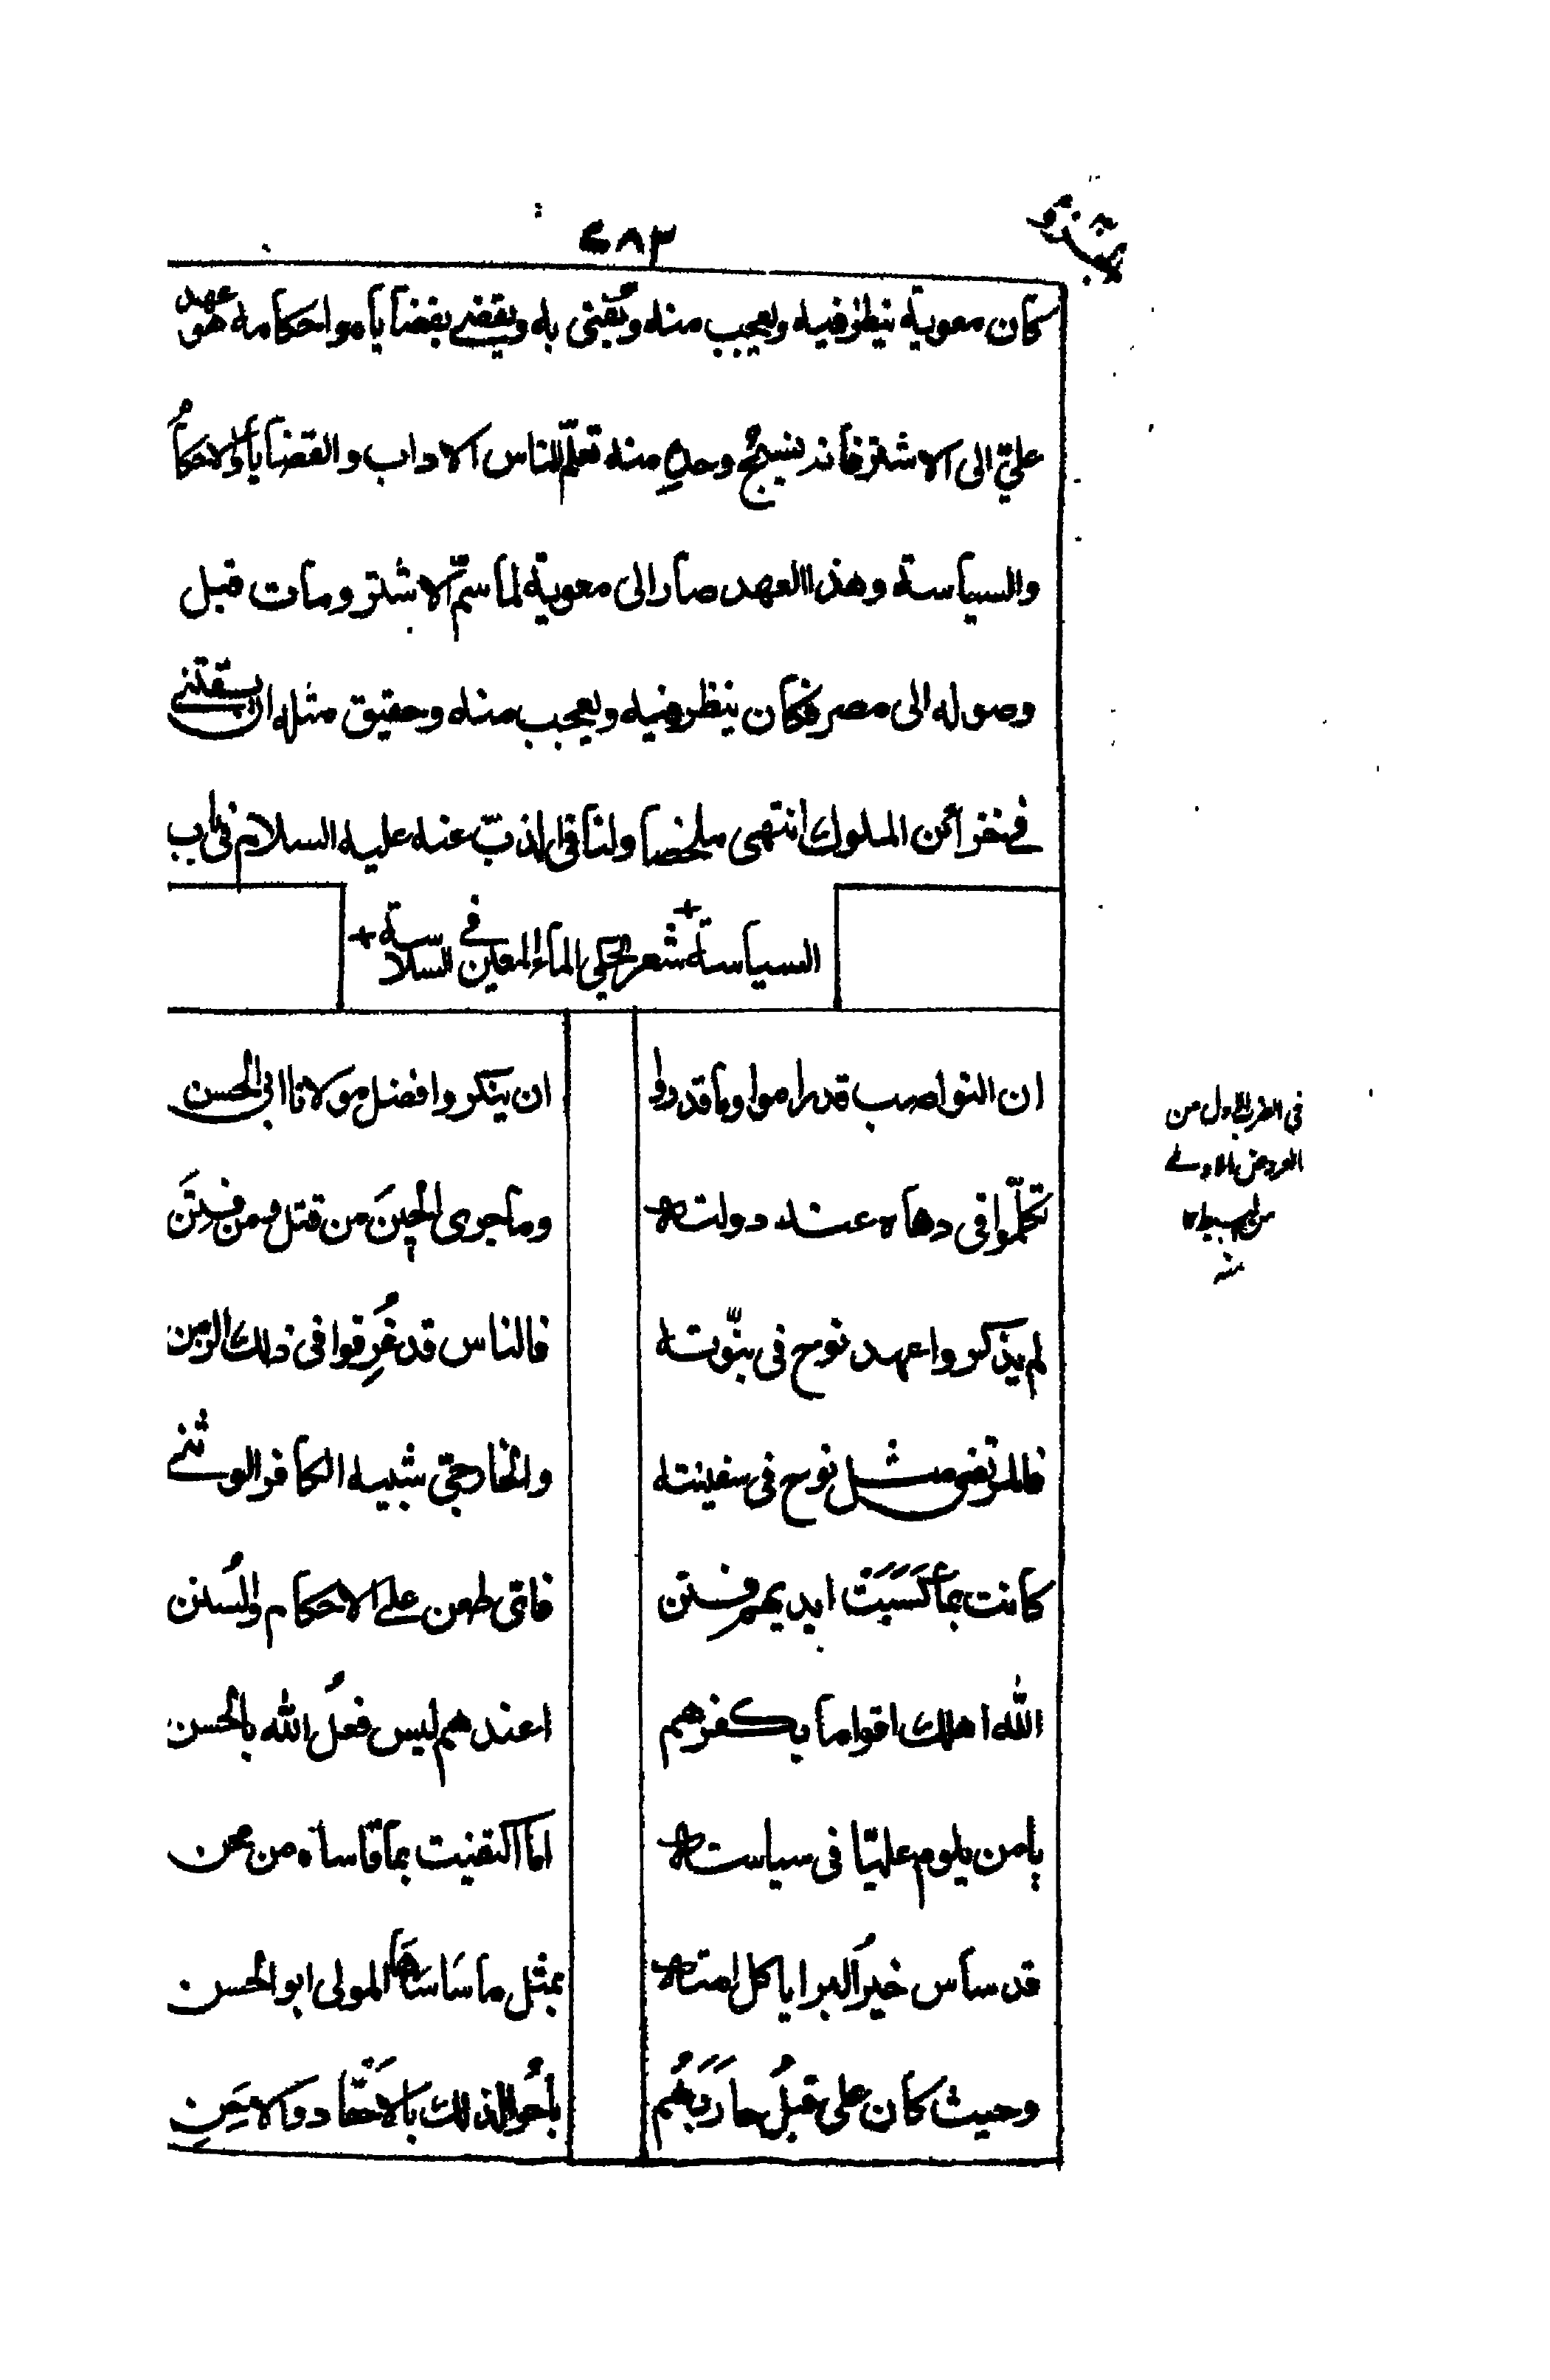 ٢٨٣
كان معوية ينظر فيه ويعجب منه ويفتى به ويقضے بقضايا مواحكامه هو عهد
عليّ الى الاشتر فانه نسيجُ وحدِهِ منه تعلّم الناس الاداب والقضايا والاحكامُ
والسياسة وهذا العهد صار الى معوية لما سمّ الاشتر ومات قبل
وصوله الى مصر فكان ينظر فيه ويعجب منه وحقيق مثله ان يقتنے
فے خزائن الملوك انتهى ملخصا ولنا فى الذبّ عنه عليه السلام فى باب
السياسة شعر يحكى الماء المعين فے السلاسة
ان النواصب قد راموا وما قدروا
ان ينكروا فضل مولانا ابى الحسن
تكلّموا فى دهاه عند دولته
وما جرى الحينَ من قتل ومن فِتَن
لم يذكروا عهد نوح فى نبّوته
فالناس قد غُرِقوا فى ذلك الزمن
فالمرتضى مثل نوح فى سفينته
والخارجيّ شبيه الكافر الوثنے
كانت بما كَسَبَتْ ايديهم فتن
فاىّ طعن علے الاحكام والسُنن
الله اهلك اقواما بكفرهم
اعندهم ليس فعلُ الله بالحسن
يا من يلوم عليّا فى سياسته
اما اكتفيت بما قاساه من محن
قد ساس خيرُ البرايا كل امته
بمثل ما سَاسَهَا المولى ابو الحسن
وحيث كان على قبلُ حارَبَهُم
باحُوا لذلك بالاحقَاد والاحَنِ
فى الضرب الاول من
العروض الاولے
من البسيط
منه